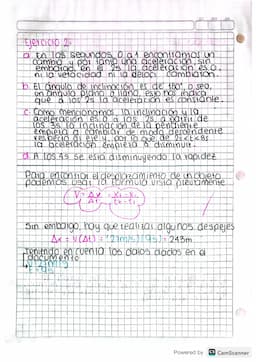 Ejercicio 2:
a. En los segundos 0 a 1 encontramos un
cambio y por tanto una aceleración, sin
embargo, en el 2s la aceleración es 0,
ni la velocidad ni la
b. El ángulo de inclinación es de 180°, o sea,
un ángulo plano o llano, esto nos indica
que a los 2s la aceleración es constante.
c. Como mencionamos la inclinación y la
aceleración es 0 a los 2s, a partir de
los 3s la inclinación de la pendiente
empieza a cambiar de modo descendente
respecto al eje y, por lo que de 2s
la aceleración empieza a disminuir.
d. A los 4s se está disminuyendo la rapidez
Para encontrar el desplazamiento de un objeto
podemos usar la fórmula vista previamente
Sin embargo, hay que realizar algunos despejes
Δx = v(Δt) = (27m/s)(9s) = 243m
Teniendo en cuenta los datos dados en el
documento
Powered by CS CamScanner